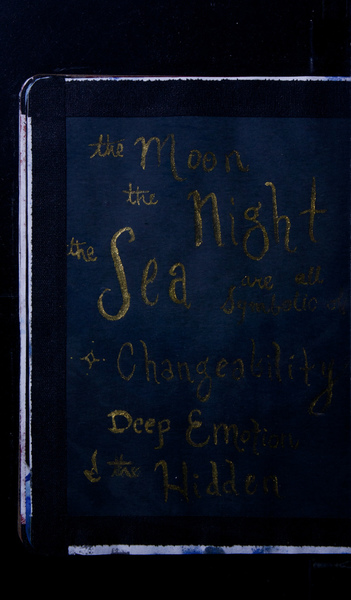 the Moon
the Night
the Sea
are all
symbolic of
Changeability
Deep Emotion
& the Hidden